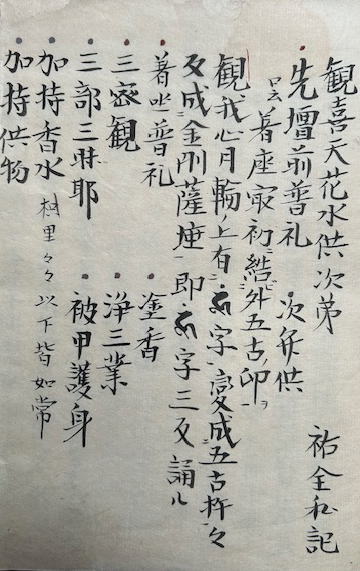 観喜天花水供次第
祐全私記
先壇前普礼 次弁供
口云着座最初ニ結外五古印ヲ
観我心月輪ノ上有 字変成五古杵々
反成金剛薩埵 即 字三反誦ル
着坐普礼 塗香
三密観 浄三業
三部三昧耶 被甲護身
加持香水 枳里々々以下皆如常
加持供物